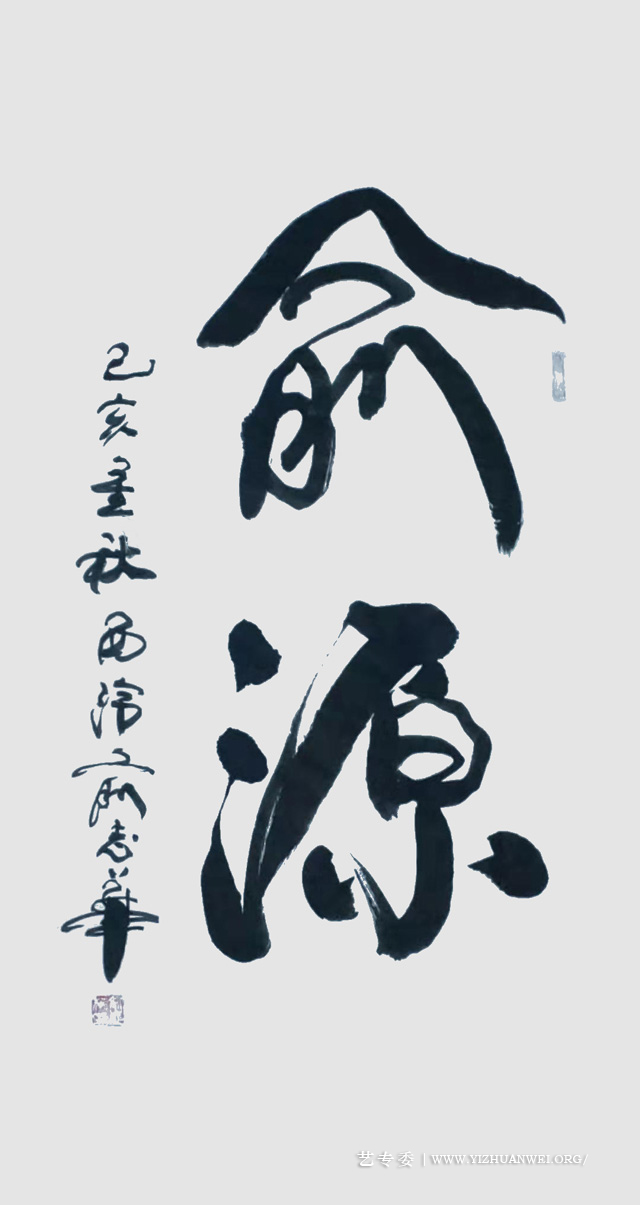 俞源
己亥季秋西泠俞志華
艺专委 | WWW.YIZHUANWEI.ORG/